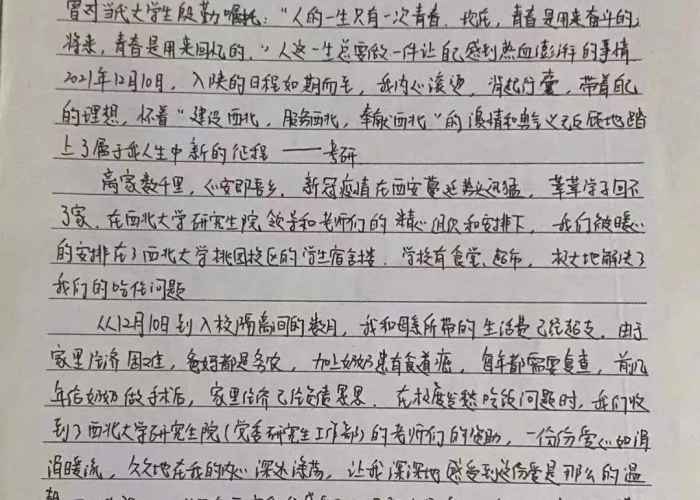 曾对当代大学生殷勤嘱托：“人的一生只有一次青春，现在，青春是用来奋斗的；
将来，青春是用来回忆的。”人这一生总要做一件让自己感到热血澎湃的事情
2021年12月10日，入陕的日程如期而至，我内心滚烫，背起行囊，带着自己
的理想，怀着“建设西北，服务西北，奉献西北”的激情和勇气义无反顾地踏
上了属于我人生中新的征程——考研
离家数千里，心安即吾乡，新冠疫情在西安蔓延势头迅猛，莘莘学子回不
了家，在西北大学研究生院领导和老师们的精心组织和安排下，我们被暖心
的安排在了西北大学桃园校区的学生宿舍楼，学校有食堂、超市，极大地解决了
我们的吃住问题
从12月10日到入校隔离间的数月，我和母亲所带的生活费已经超支，由于
家里经济困难，爸妈都是务农，加上奶奶患有食道癌，每年都需要复查，前几
年给奶奶做手术后，家里经济已经负债累累，在极度发愁吃饭问题时，我们收
到了西北大学研究生院（党委研究生工作部）的老师们的资助，一份份爱心如涓
涓暖流，久久地在我的内心深处荡漾，让我深深地感受到这份爱是那么的温